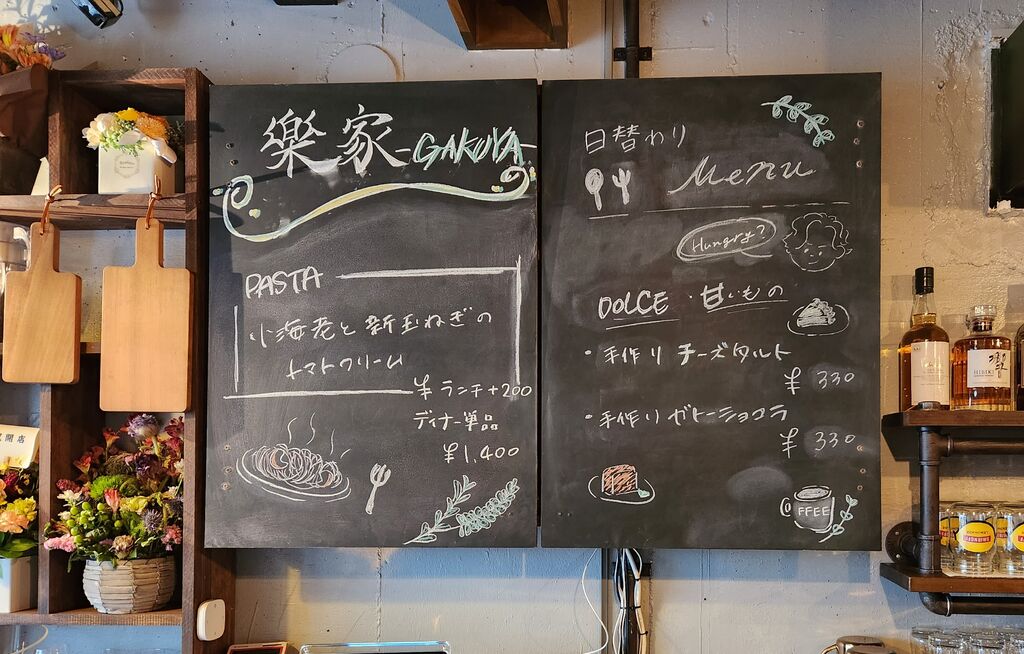 樂家-GAKUYA-
PASTA
小海老と新玉ねぎの
トマトクリーム
¥ランチ+200
ディナー単品
¥1,400
日替わり
Menu
Hungry?
DOLCE・甘いもの
・手作りチーズタルト
¥330
・手作りガトーショコラ
¥330
FFEE
開店
響
HIBIKI